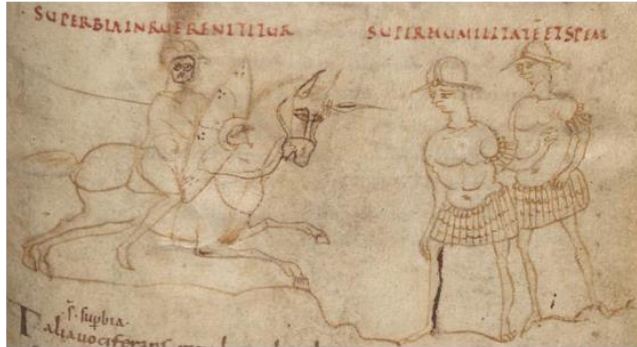 SUPERBIA INRUERE NITITUR
SUPER HUMILITATĒ ET SPEM
s. sup̄bia
Talia vociferans